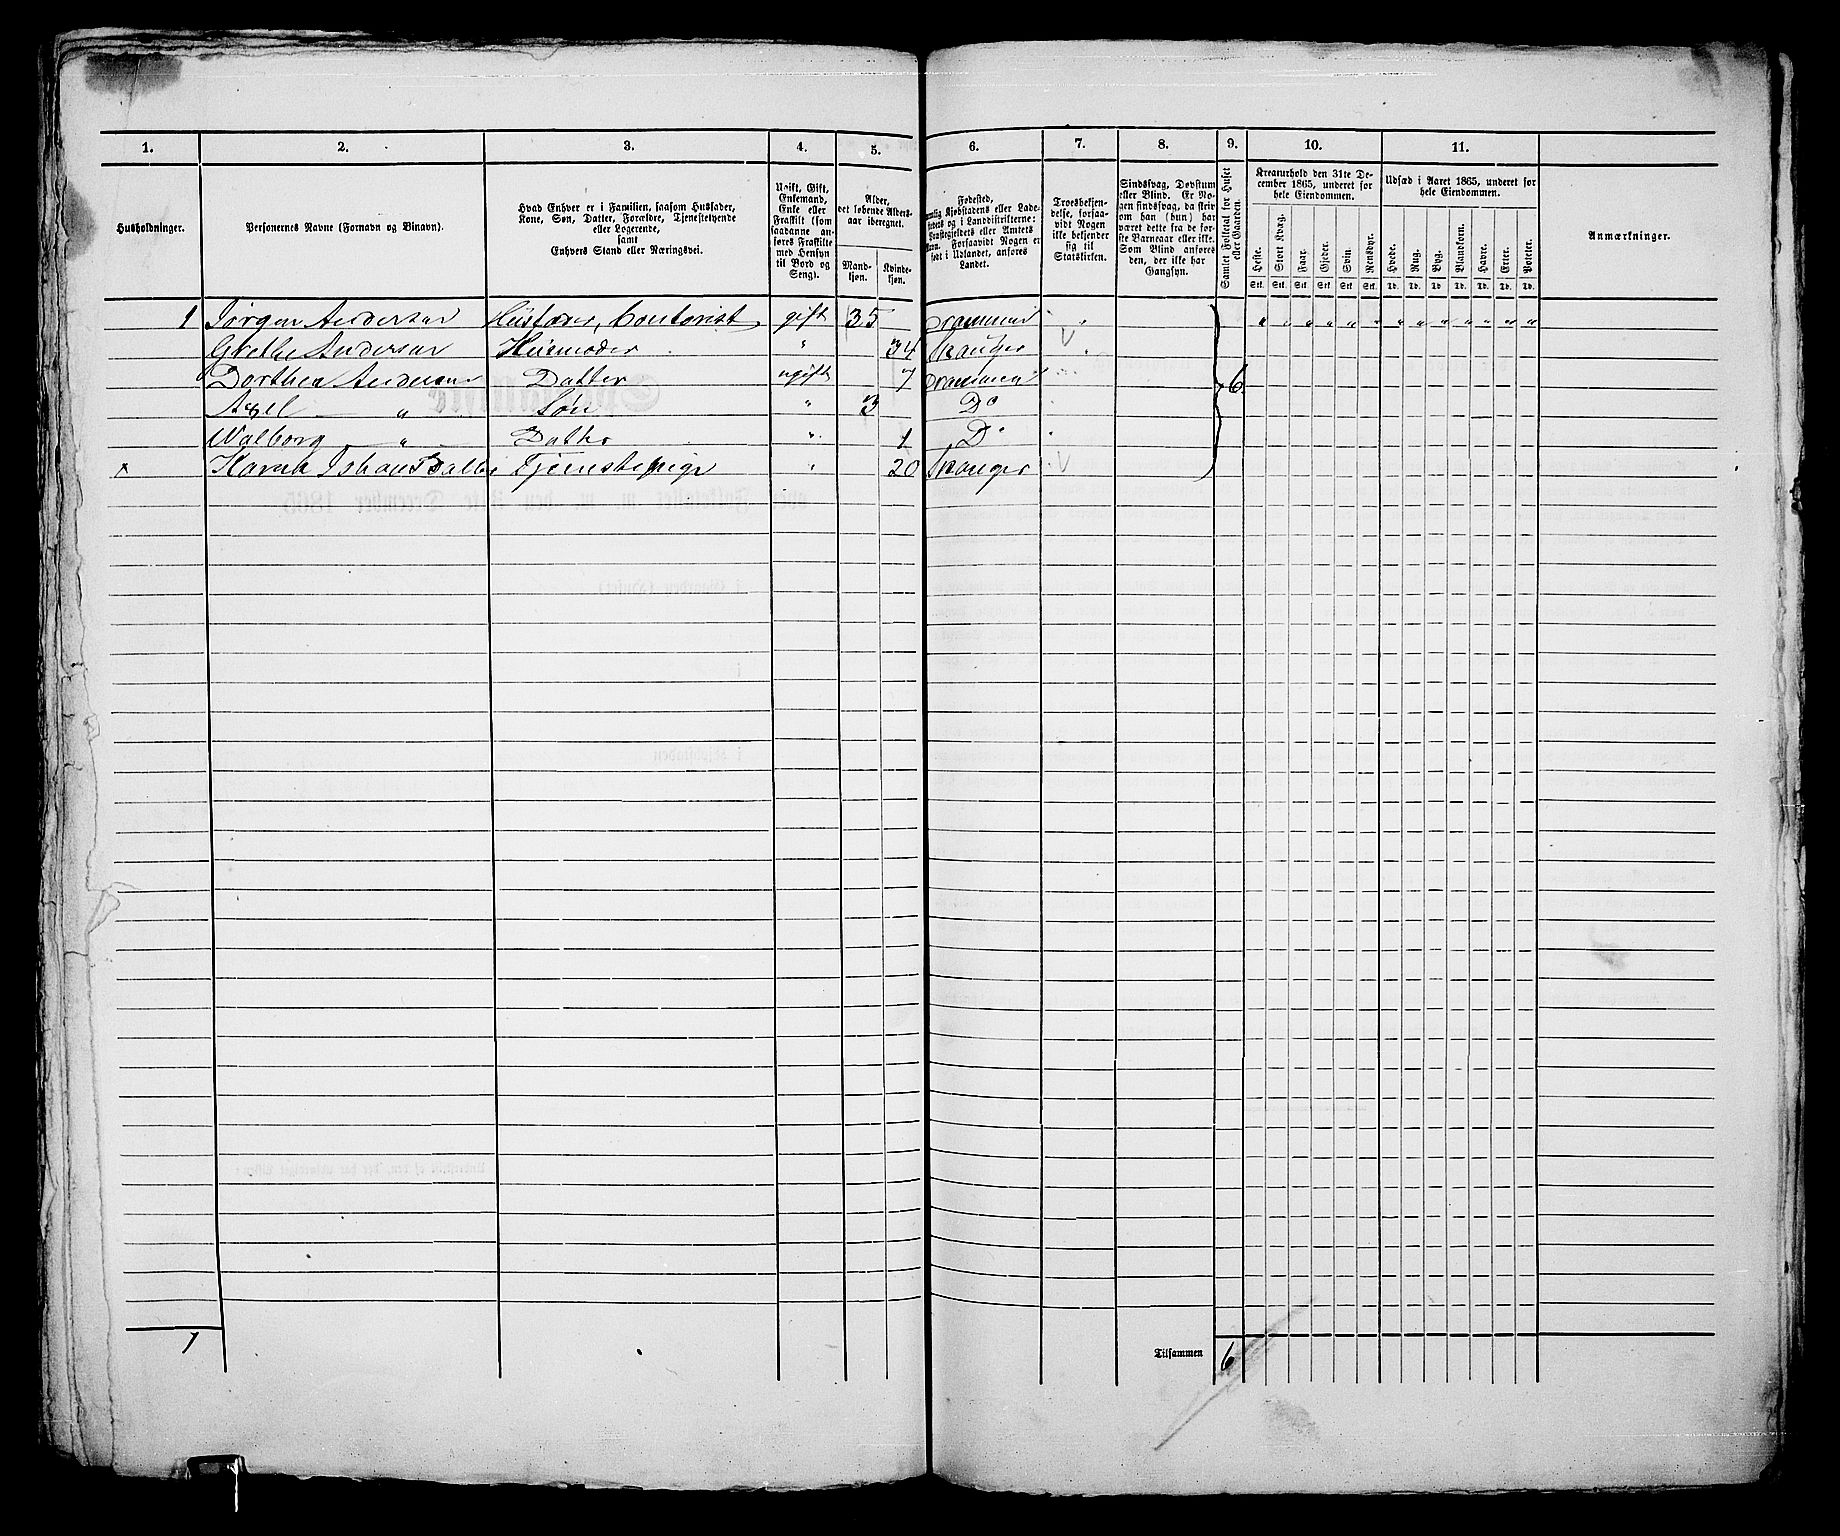 1. 2. 3. 4. 5. 6. 7. 8. 9. 10. 11.
Husholdninger.
Personernes Navne (Fornavn og Binavn).
Hvad Enhver er i Familien, saasom Husfader,
Kone, Søn, Datter, Forældre, Tjenestetyende
eller Logerende,
samt
Enhvers Stand eller Næringsvei.
Ugift, Gift,
Enkemand,
Enke eller
Fraskilt (som
saadanne an-
føres Fraskilte
med Hensyn
til Bord og
Seng).
Alder,
det løbende Alders-
aar iberegnet.
Mand-
kjøn.
Kvinde-
kjøn.
Fødested,
nemlig Kjøbstadens eller Lade-
stedets og i Landdistrikterne:
Præstegjeldets eller Amtets
Navn. Forsaavidt Nogen er
født i Udlandet, anføres
Landet.
Troesbekjen-
delse, forsaa-
vidt Nogen
ikke bekjender
sig til
Statskirken.
Sindssvag, Døvstum
eller Blind. Er No-
gen sindssvag, da skriv
om han (hun) har
været dette fra de før-
ste Barneaar eller ikke.
Som Blind anføres
den, der ikke har
Gangsyn.
Samlet Folketal for Huset
eller Gaarden.
Kreaturhold den 31te De-
cember 1865, underet for
hele Eiendommen.
Heste. Stort Kvæg. Faar. Gjeder. Svin. Rensdyr.
Stk. Stk. Stk. Stk. Stk. Stk.
Udsæd i Aaret 1865, underet for
hele Eiendommen.
Hvede. Rug. Byg. Blandkorn. Havre. Erter. Poteter.
Td. Td. Td. Td. Td. Td. Td.
Anmærkninger.
1 Jörgen Andersen Husfader, Contorist gift 35 Drammen " " " " " " " " " " " " "
Grethe Andersen Husmoder " 34
Dorthea Andersen Datter ugift 7 Drammen 6
Axel — " Søn " 3 Do
Walborg — " Datter " 1 Do
x Karen Tjenestepige " 20
1 Tilsammen 6